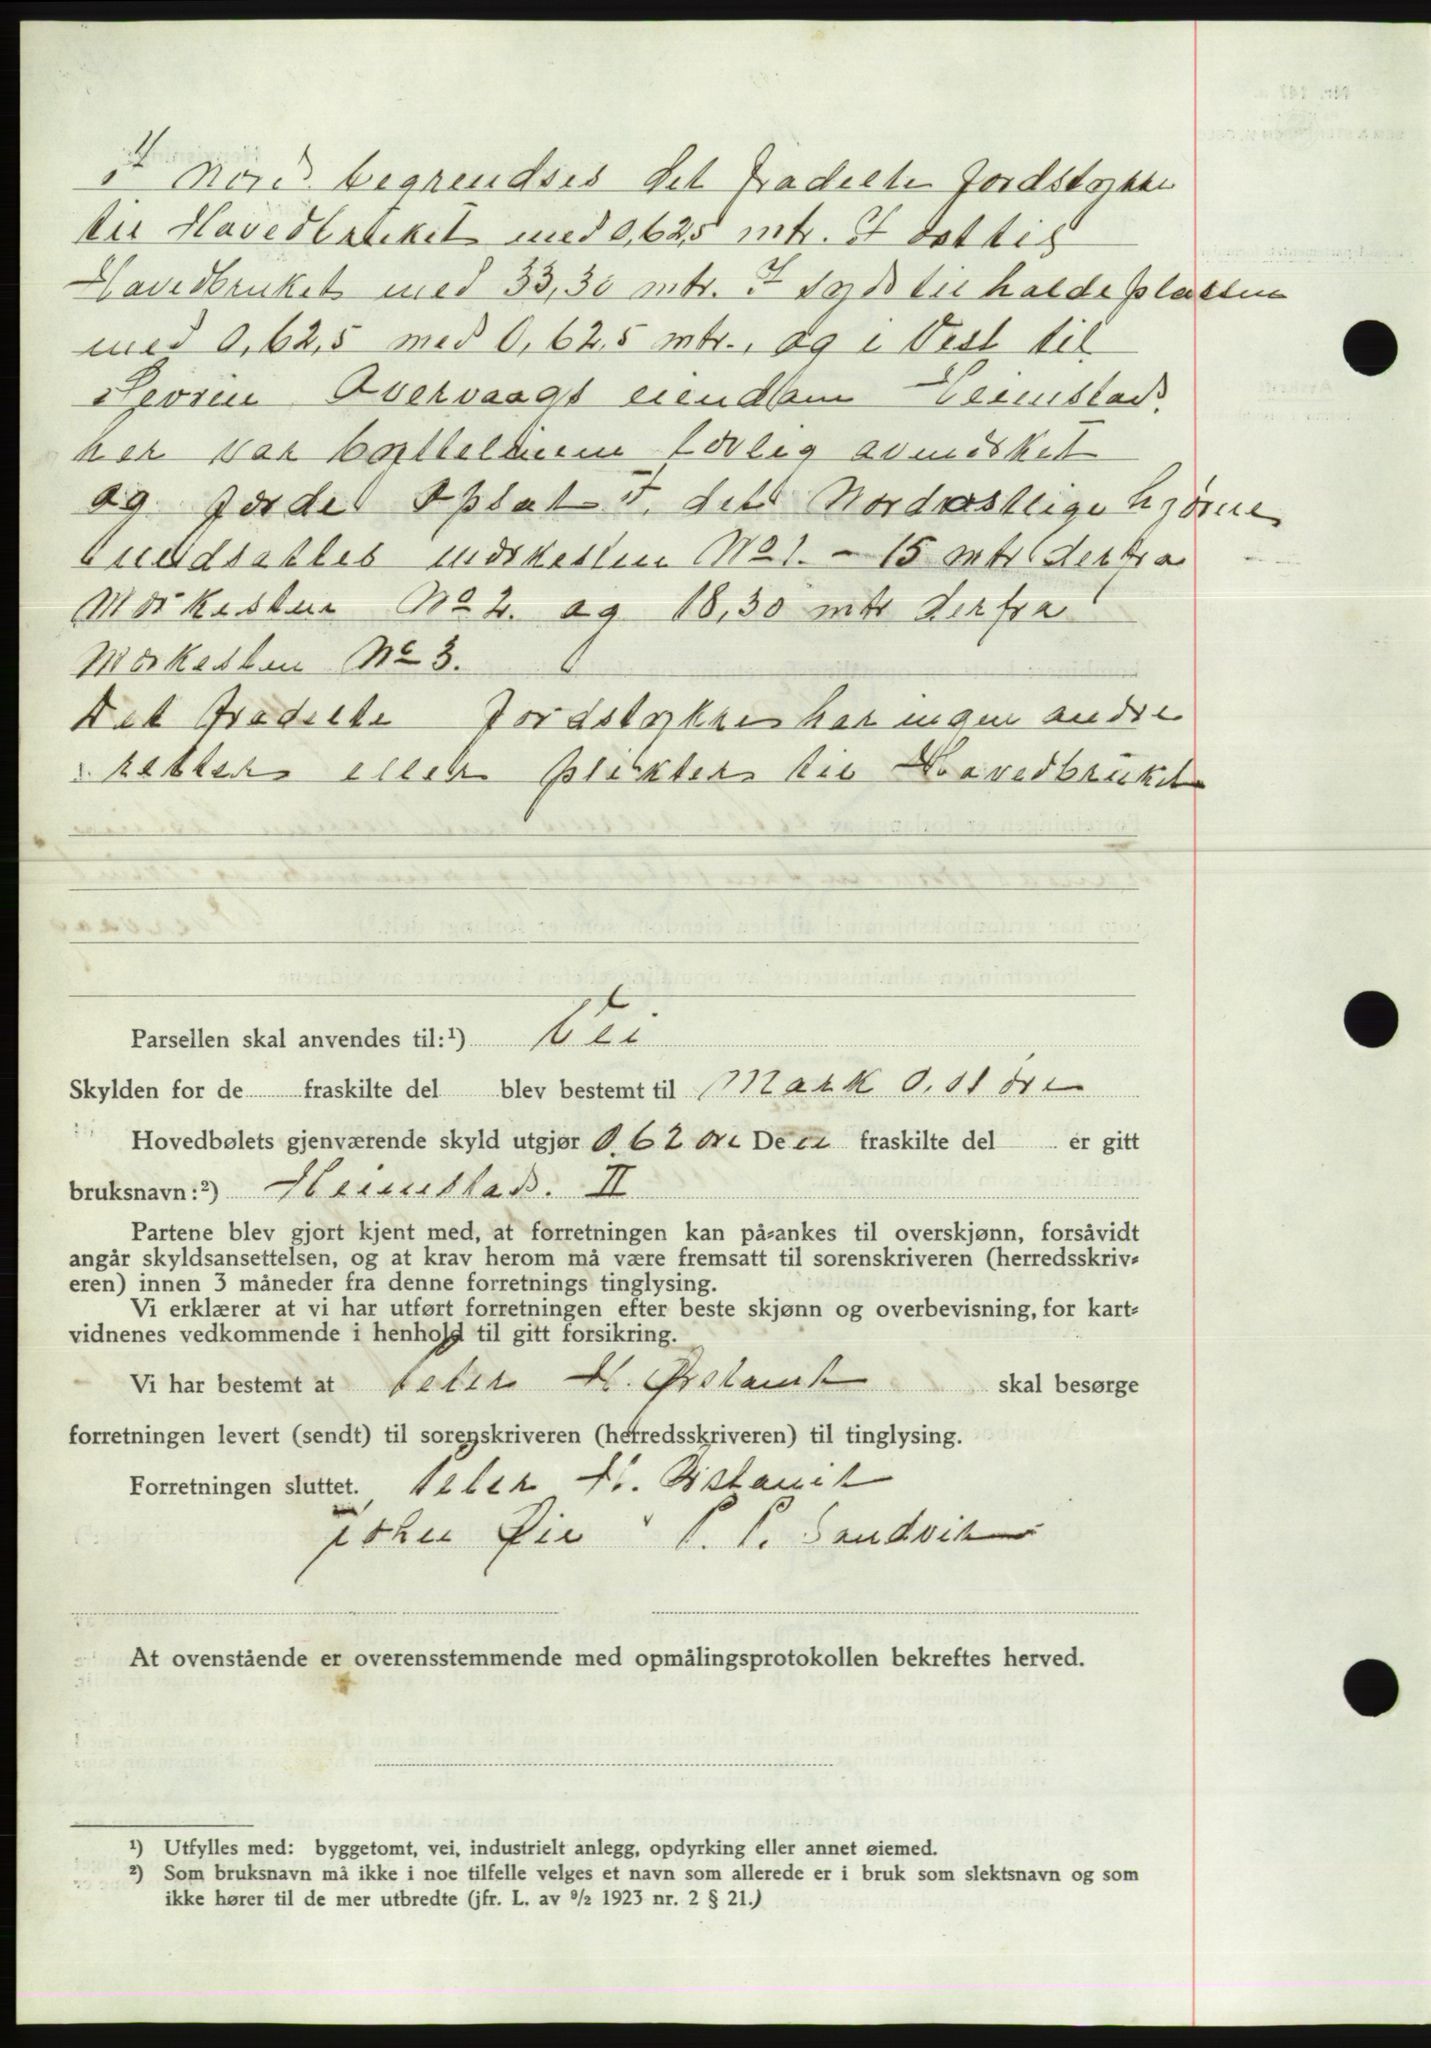 I Nord begrendses det fradelte Jordstykke
til Hovedbruket med 0,62,5 mtr. I øst til
Hovedbruket med 33,30 mtr. I syd til holdeplassen
med 0,62,5 med 0,62,5 mtr., og i Vest til
Sevrin Overvaags eiendom Heimstad.
her var byttelinien lovlig avmerket
og Jorde oplat I. det Nordøstlige hjørne
nedsattes merkesten No 1. - 15 mtr derfra
Merkesten No 2. og 18,30 mtr derfra
Merkesten No 3.
Det fradelte Jordstykke har ingen andre
retter eller plikter til Hovedbruket
Parsellen skal anvendes til:¹) Vei
Skylden for de fraskilte del blev bestemt til Mark 0.01 øre
Hovedbølets gjenværende skyld utgjør 0,62 øre Den fraskilte del er gitt
bruksnavn:²) Heimstad. II
Partene blev gjort kjent med, at forretningen kan på-ankes til overskjønn, forsåvidt
angår skyldsansettelsen, og at krav herom må være fremsatt til sorenskriveren (herredsskriv-
eren) innen 3 måneder fra denne forretnings tinglysing.
Vi erklærer at vi har utført forretningen efter beste skjønn og overbevisning, for kart-
vidnenes vedkommende i henhold til gitt forsikring.
Vi har bestemt at Peter H. Ørstavik skal besørge
forretningen levert (sendt) til sorenskriveren (herredsskriveren) til tinglysing.
Forretningen sluttet. Peter H. Ørstavik
Johu Øie P. P. Sandvik
At ovenstående er overensstemmende med opmålingsprotokollen bekreftes herved.
¹) Utfylles med: byggetomt, vei, industrielt anlegg, opdyrking eller annet øiemed.
²) Som bruksnavn må ikke i noe tilfelle velges et navn som allerede er i bruk som slektsnavn og som
ikke hører til de mer utbredte (jfr. L. av 9/2 1923 nr. 2 § 21.)